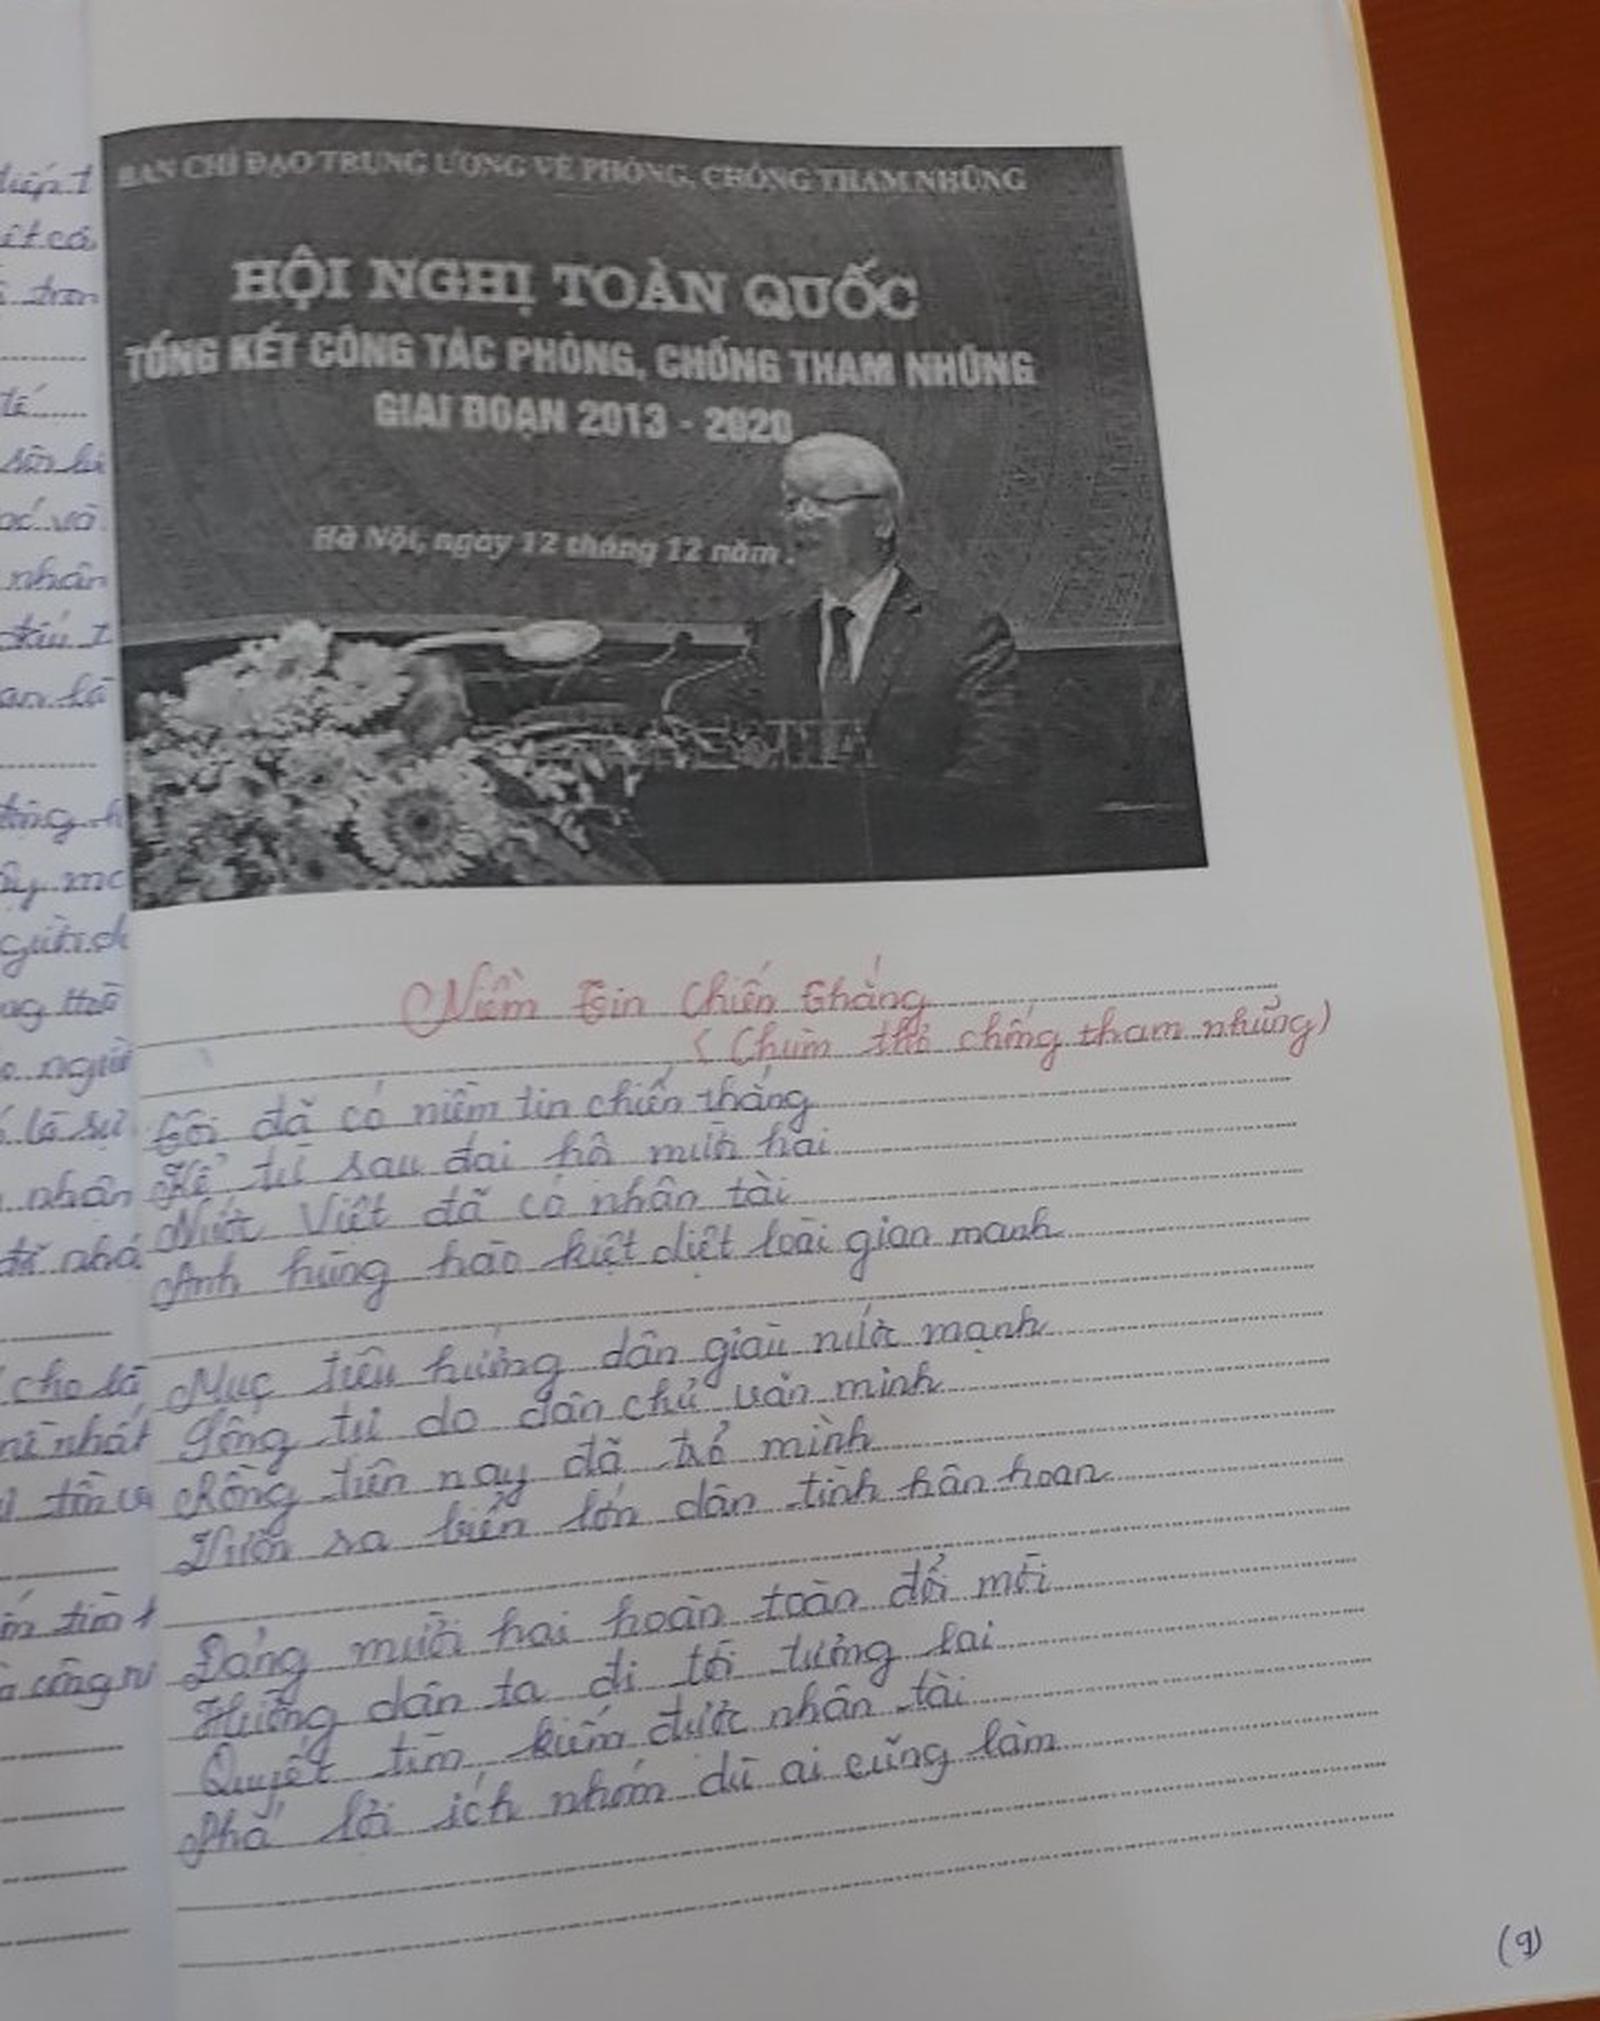 BAN CHỈ ĐẠO TRUNG ƯƠNG VỀ PHÒNG, CHỐNG THAM NHŨNG
HỘI NGHỊ TOÀN QUỐC
TỔNG KẾT CÔNG TÁC PHÒNG, CHỐNG THAM NHŨNG
GIAI ĐOẠN 2013 - 2020
Hà Nội, ngày 12 tháng 12 năm
Niềm tin chiến thắng
(Chùm thơ chống tham nhũng)
Tôi đã có niềm tin chiến thắng
Kể từ sau đại hội mười hai
Nước Việt đã có nhân tài
Anh hùng hào kiệt diệt loài gian manh
Mục tiêu hướng dân giàu nước mạnh
Sống tự do dân chủ văn minh
Rồng tiên nay đã trở mình
Vươn ra biển lớn dân tình hân hoan
Đảng mười hai hoàn toàn đổi mới
Hướng dân ta đi tới tương lai
Quyết tìm kiếm được nhân tài
Phá lợi ích nhóm dù ai cũng làm
(9)
ít cá
tế
nhân
ac và
ây mc
là sự
nhân
cho là
nì nhất